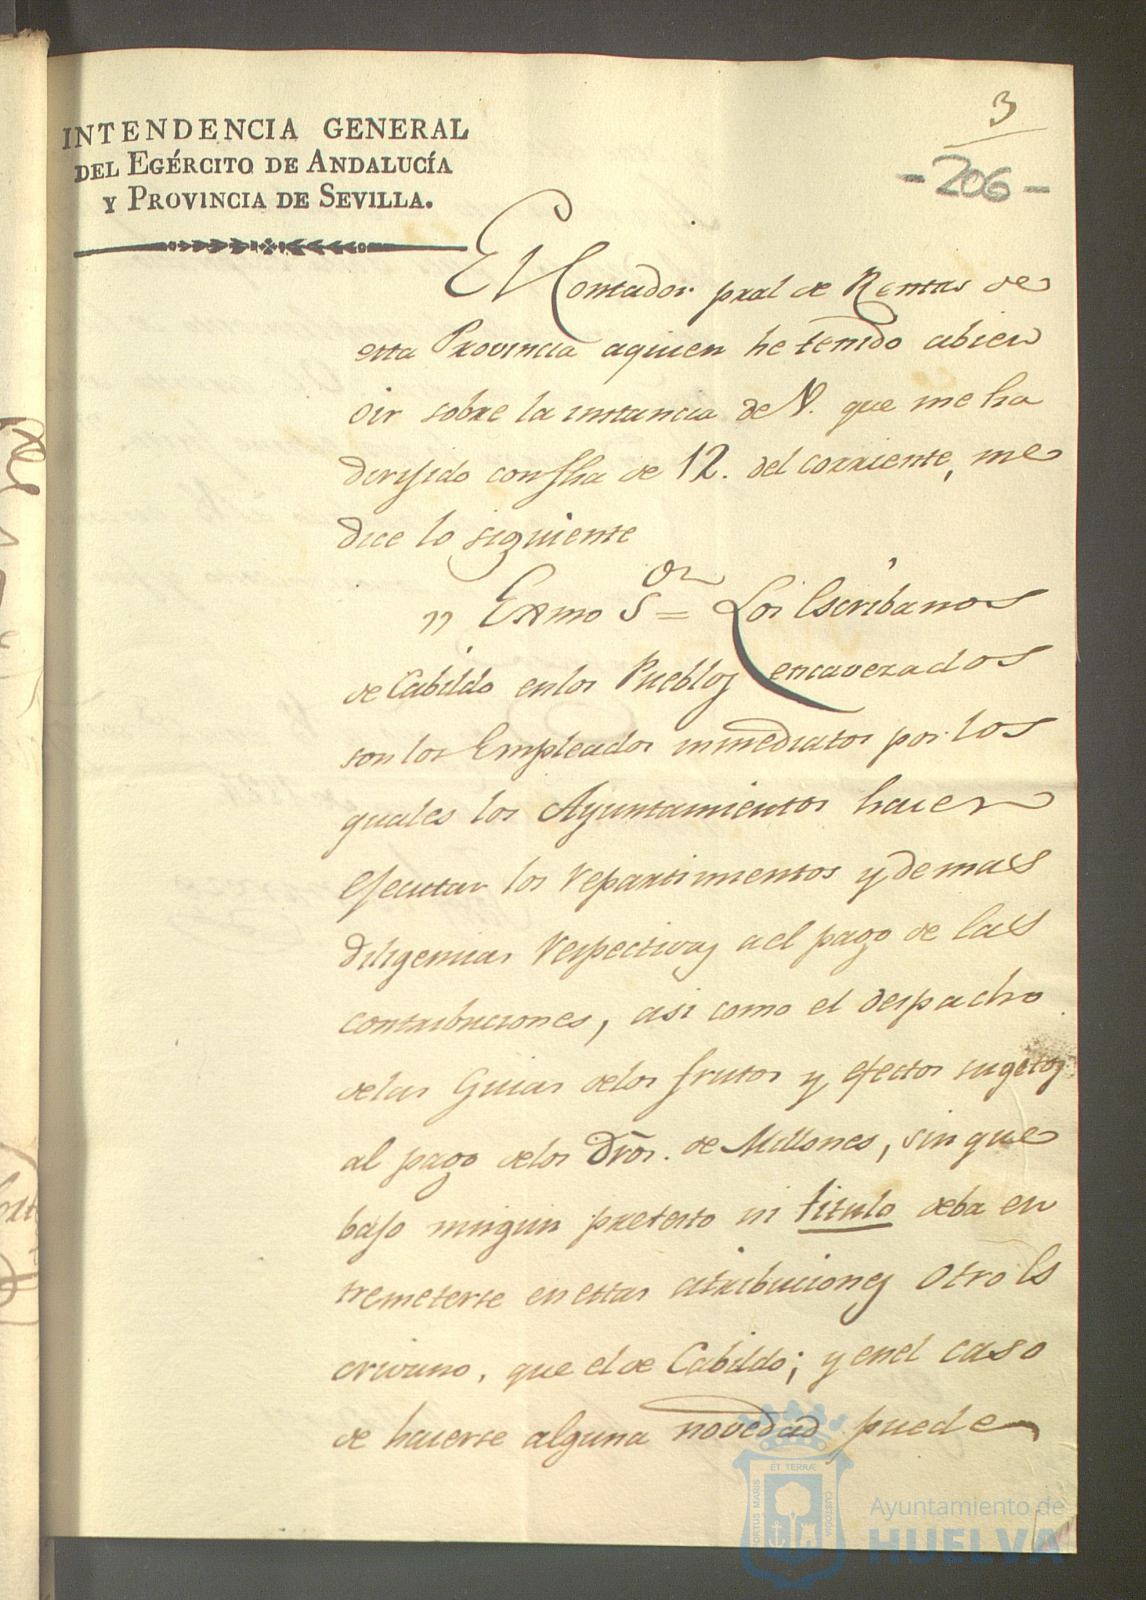 3
-206-
INTENDENCIA GENERAL
DEL EGÉRCITO DE ANDALUCÍA
Y PROVINCIA DE SEVILLA.
El Contador pral de Rentas de
esta Provincia aquien he tenido abien
oir sobre la instancia de V. que me ha
dirijido con fha de 12. del corriente, me
dice lo siguiente
" Exmo Sor = Los Escribanos
de Cabildo en los Pueblos encavezados
son los Empleados inmediatos por los
quales los Ayuntamientos hacen
efecutar los repartimientos y demas
diligencias respectivas a el pago de las
contribuciones, asi como el despacho
de las Guias de los frutos y efectos sugetos
al pago de los Dros. de Millones, sin que
bajo ningun pretesto ni titulo deba en
tremeterse en estas atribuciones otro Es
crivano, que el de Cabildo; y en el caso
de hacerse alguna novedad puede
PORTUS MARIS
ET TERRÆ
CUSTODIA
Ayuntamiento de
HUELVA